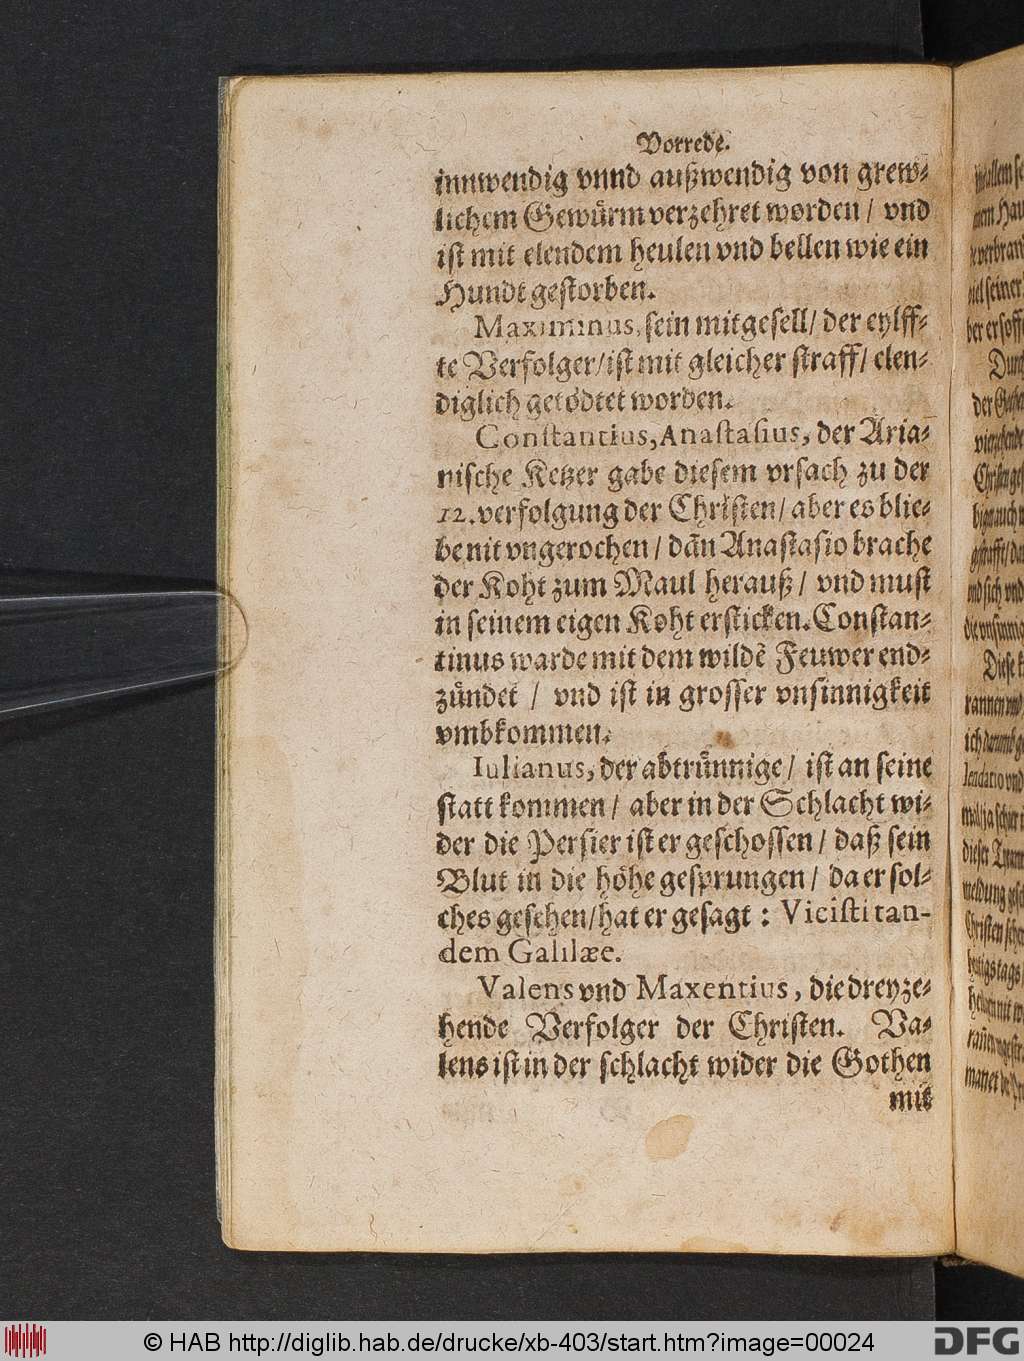 Vorrede.
innwendig vnnd außwendig von grew-
lichem Gewürm verzehret worden / vnd
ist mit elendem heulen vnd bellen wie ein
Hundt gestorben.
Maximinus, sein mitgesell / der eylff-
te Verfolger / ist mit gleicher straff / elen-
diglich getödtet worden.
Constantius, Anastasius, der Aria-
nische Ketzer gabe diesem vrsach zu der
12. verfolgung der Christen / aber es blie-
be nit vngerochen / dañ Anastasio brache
der Koht zum Maul herauß / vnd must
in seinem eigen Koht ersticken. Constan-
tinus warde mit dem wildẽ Feuwer end-
zündet / vnd ist in grosser vnsinnigkeit
vmbkommen.
Iulianus, der abtrünnige / ist an seine
statt kommen / aber in der Schlacht wi-
der die Persier ist er geschossen / daß sein
Blut in die höhe gesprungen / da er sol-
ches gesehen / hat er gesagt : Vicisti tan-
dem Galilæe.
Valens vnd Maxentius, die dreyze-
hende Verfolger der Christen. Va-
lens ist in der schlacht wider die Gothen
mit
© HAB http://diglib.hab.de/drucke/xb-403/start.htm?image=00024
DFG